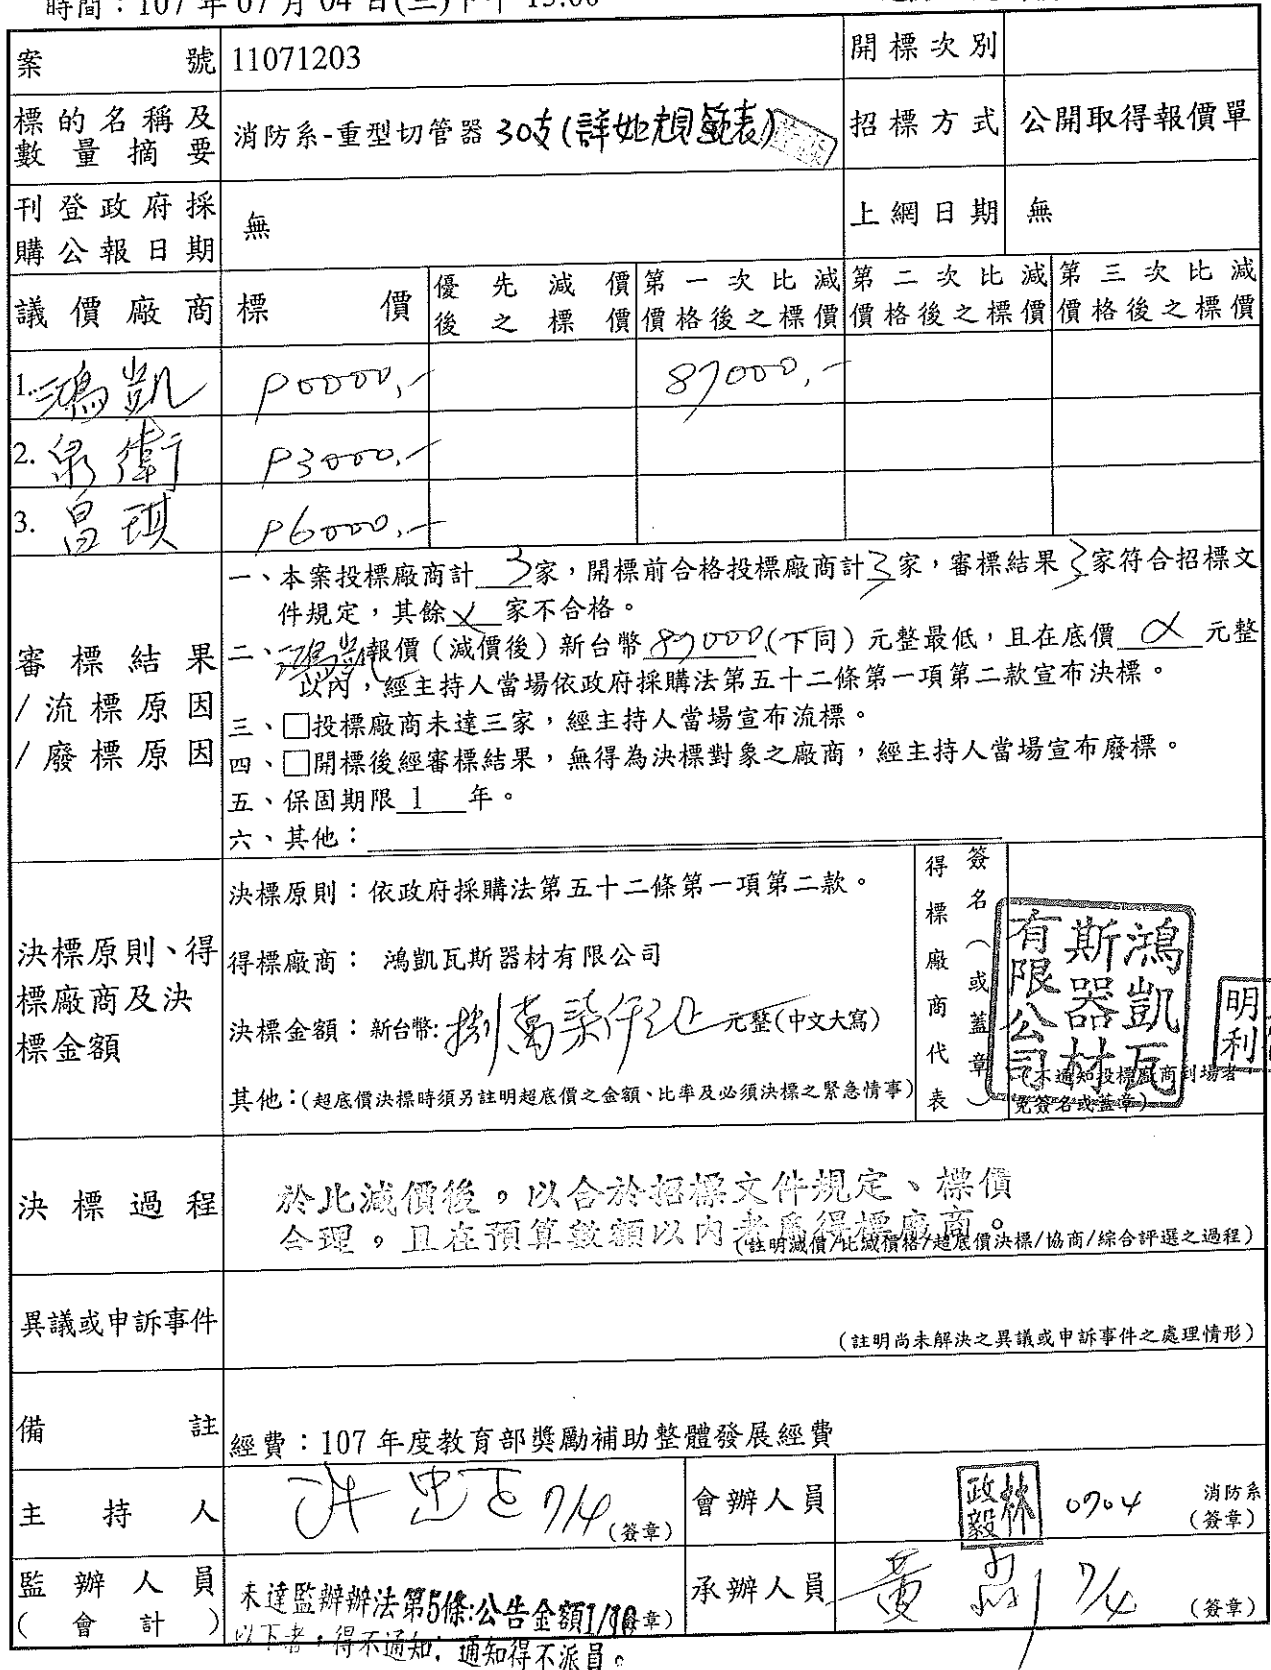 時間：107 年 07 月 04 日(三)下午 15:00
案號 11071203 開標次別
標的名稱及數量摘要 消防系-重型切管器 30支(詳如規範表) 招標方式 公開取得報價單
刊登政府採購公報日期 無 上網日期 無
議價廠商 標價 優先減價後之標價 第一次比減價格後之標價 第二次比減價格後之標價 第三次比減價格後之標價
1. 鴻凱 90000,- 87000,-
2. 泉衛 93000,-
3. 昌琪 96000,-
審標結果/流標原因/廢標原因
一、本案投標廠商計 3 家，開標前合格投標廠商計 3 家，審標結果 3 家符合招標文
件規定，其餘 X 家不合格。
二、鴻凱 報價（減價後）新台幣 87000 (下同) 元整最低，且在底價 元整
以內，經主持人當場依政府採購法第五十二條第一項第二款宣布決標。
三、□投標廠商未達三家，經主持人當場宣布流標。
四、□開標後經審標結果，無得為決標對象之廠商，經主持人當場宣布廢標。
五、保固期限 1 年。
六、其他：
決標原則、得標廠商及決標金額
決標原則：依政府採購法第五十二條第一項第二款。
得標廠商： 鴻凱瓦斯器材有限公司
決標金額：新台幣: 捌萬柒仟 元整(中文大寫)
其他：(超底價決標時須另註明超底價之金額、比率及必須決標之緊急情事)
得標廠商代表
簽名（或蓋章）
鴻凱瓦斯器材有限公司
明利
(不通知投標廠商到場者
免簽名或蓋章)
決標過程
於比減價後，以合於招標文件規定、標價
合理，且在預算數額以內者為得標廠商。
(註明減價/比減價格/超底價決標/協商/綜合評選之過程)
異議或申訴事件
(註明尚未解決之異議或申訴事件之處理情形)
備註 經費：107 年度教育部獎勵補助整體發展經費
主持人 7/4 (簽章) 會辦人員 林政毅 0704 消防系 (簽章)
監辦人員(會計) 未達監辦辦法第5條:公告金額1/10 (簽章)
以下者，得不通知，通知得不派員。
承辦人員 黃 7/4 (簽章)